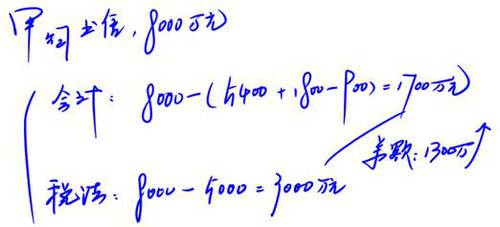 甲公司出售,8000万元
会计: 8000-(5400+1800-900)=1700万元
差额:1300万↑
税法: 8000-5000=3000万元